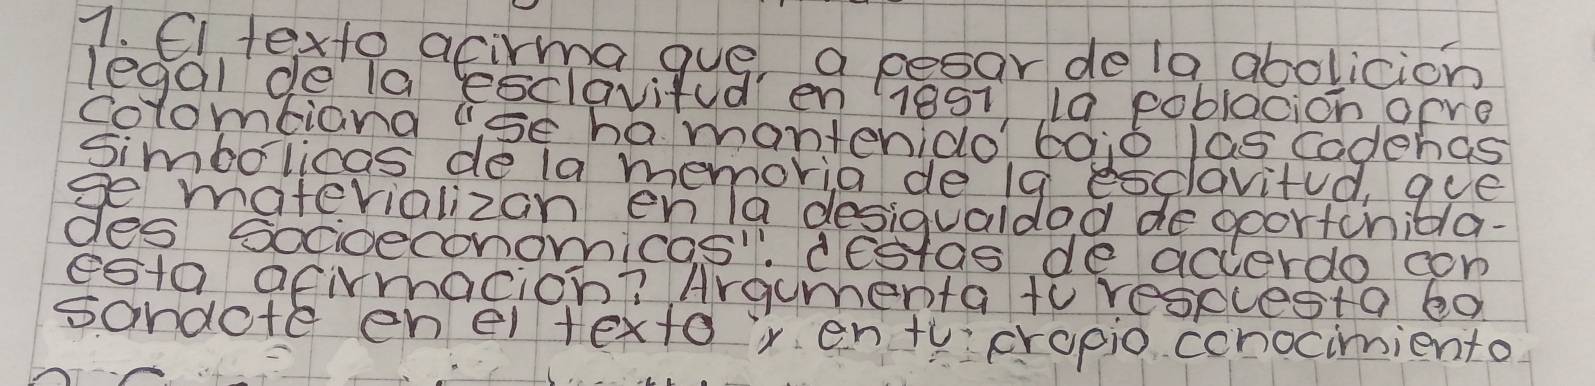 1. El texto afirma que, a pesar de la abolición
legal de la esclavitud en 1851, la población afro
colombiana "se ha mantenido bajo las cadenas
simbólicas de la memoria de la esclavitud, que
se materializan en la desigualdad de oportunida-
des socioeconomicas". ¿Estas de acuerdo con
esta afirmación? Argumenta tu respuesta ba
sandote en el texto y en tu propio conocimiento